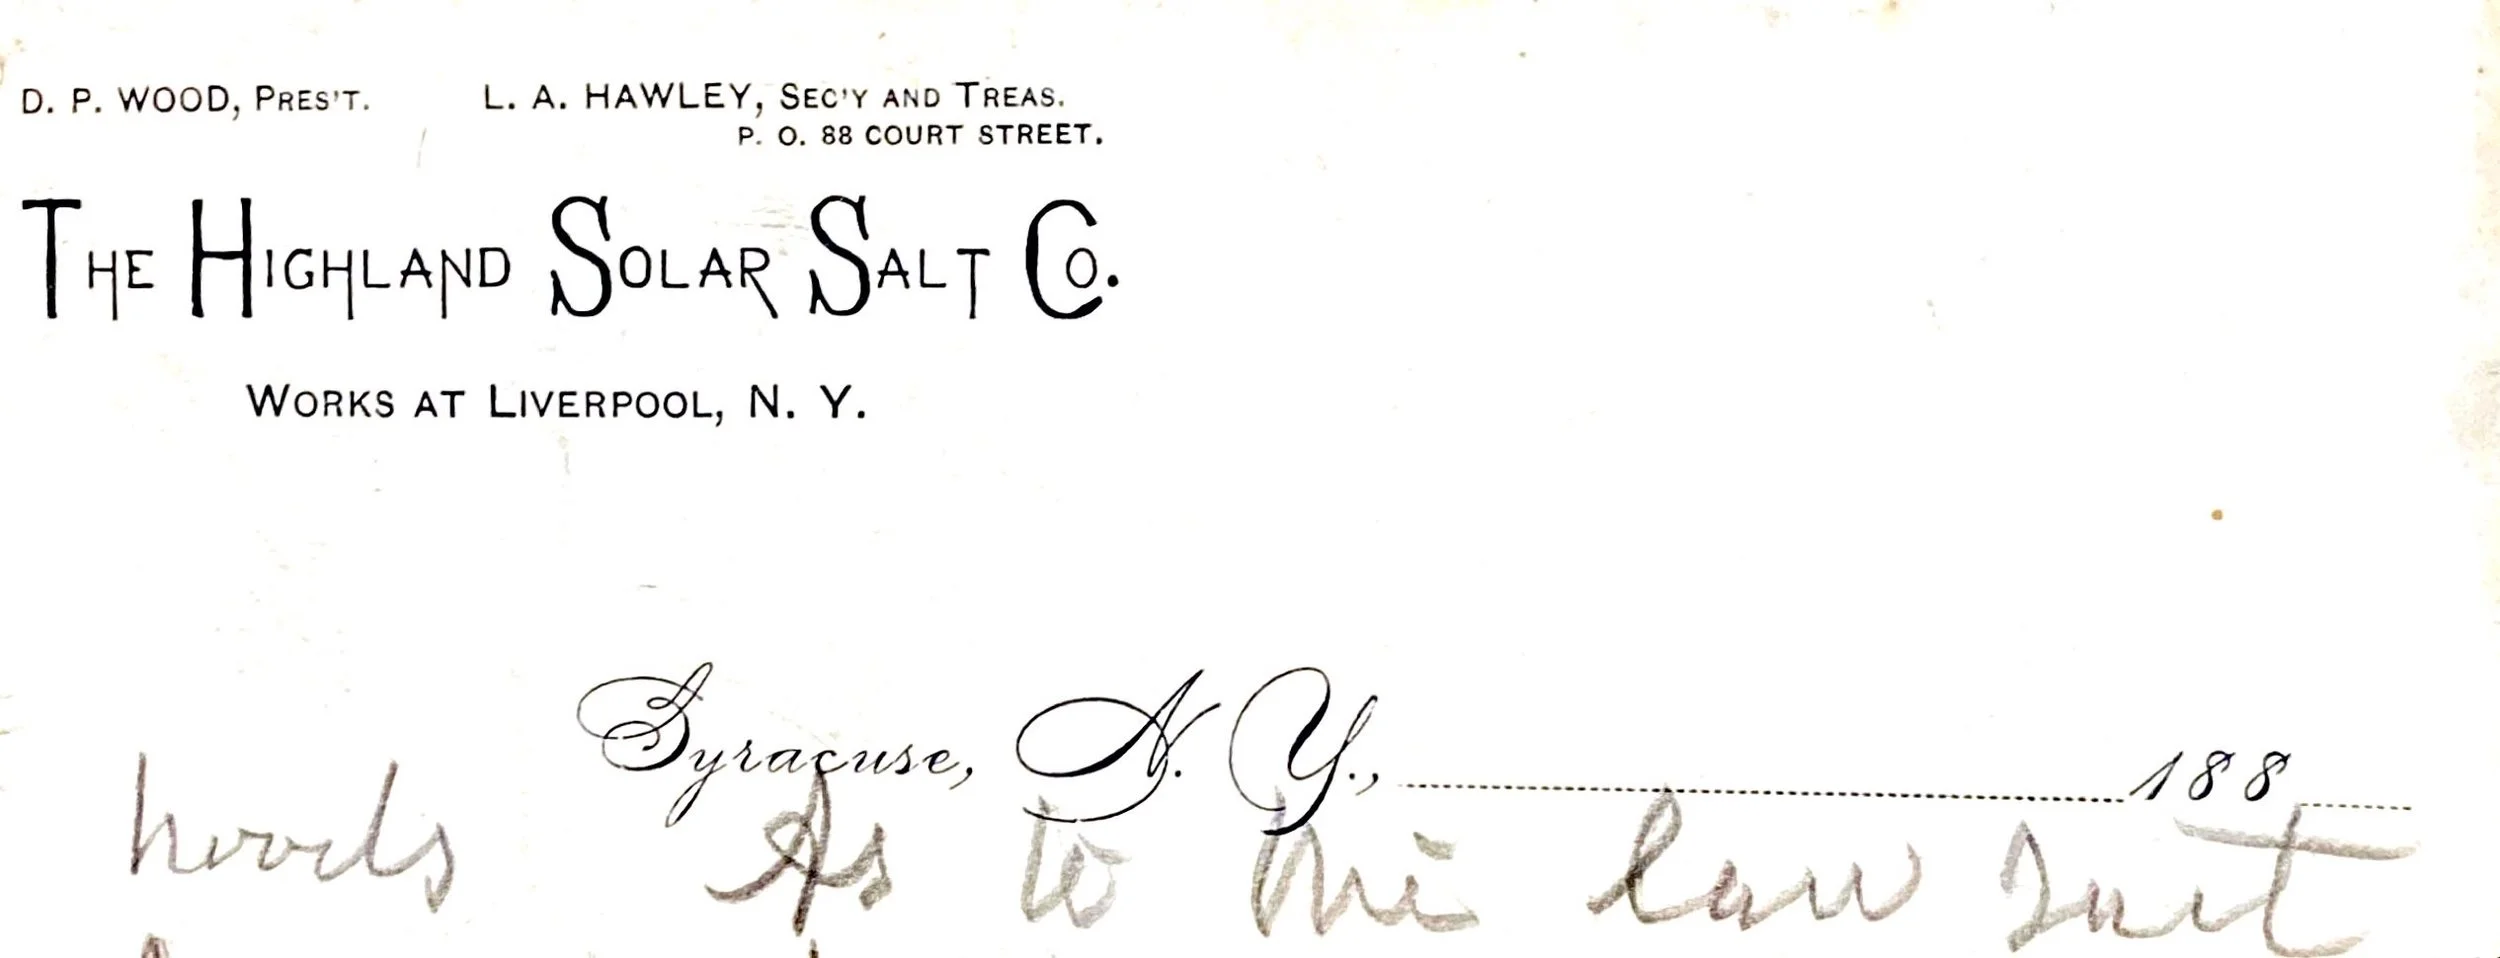 D. P. WOOD, PRES'T. L. A. HAWLEY, SEC'Y AND TREAS.
P. O. 88 COURT STREET.
THE HIGHLAND SOLAR SALT CO.
WORKS AT LIVERPOOL, N. Y.
Syracuse, N. Y., 188
As to the law suit